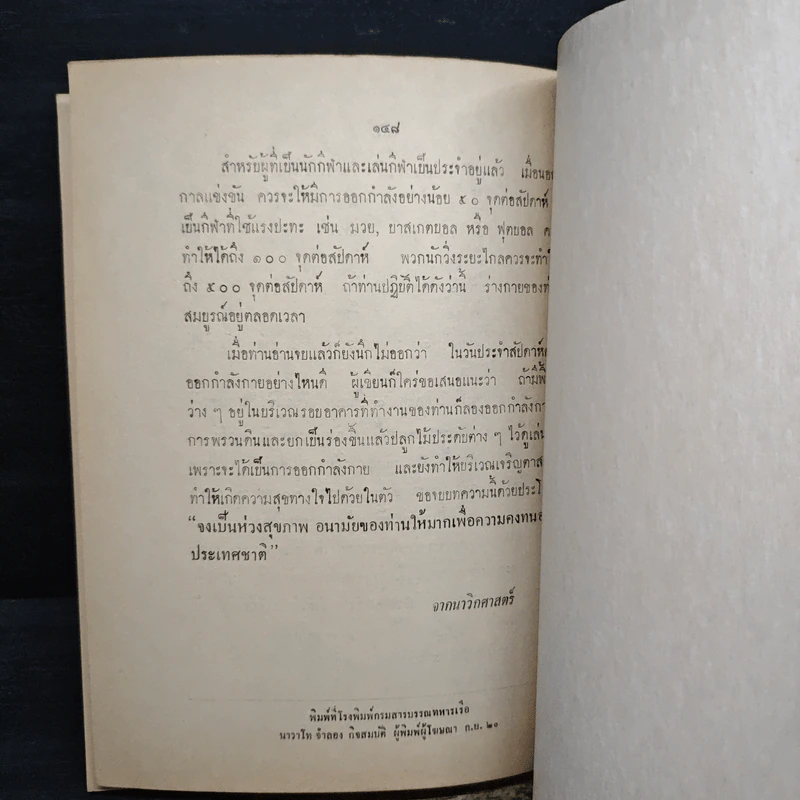 ๑๔๘
สำหรับผู้ที่เป็นนักกีฬาและเล่นกีฬาเป็นประจำอยู่แล้ว เมื่อนอก
กาลแข่งขัน ควรจะให้มีการออกกำลังอย่างน้อย ๕๐ จุดต่อสัปดาห์
เป็นกีฬาที่ใช้แรงปะทะ เช่น มวย, บาสเกตบอล หรือ ฟุตบอล ค
ทำให้ได้ถึง ๑๐๐ จุดต่อสัปดาห์ พวกนักวิ่งระยะไกลควรจะทำ
ถึง ๕๐๐ จุดต่อสัปดาห์ ถ้าท่านปฏิบัติได้ดังว่านี้ ร่างกายของท่
สมบูรณ์อยู่ตลอดเวลา
เมื่อท่านอ่านจบแล้วก็ยังนึกไม่ออกว่า ในวันประจำสัปดาห์
ออกกำลังกายอย่างไหนดี ผู้เขียนก็ใคร่ขอเสนอแนะว่า ถ้ามีพื้
ว่าง ๆ อยู่ในบริเวณรอบอาคารที่ทำงานของท่านก็ลองออกกำลังกา
การพรวนดินและยกเป็นร่องขึ้นแล้วปลูกไม้ประดับต่าง ๆ ไว้ดูเล่น
เพราะจะได้เป็นการออกกำลังกาย และยังทำให้บริเวณเจริญตาส
ทำให้เกิดความสุขทางใจไปด้วยในตัว ขอจบบทความนี้ด้วยประโ
“จงเป็นห่วงสุขภาพ อนามัยของท่านให้มากเพื่อความคงทน
ประเทศชาติ”
จากนาวิกศาสตร์
พิมพ์ที่โรงพิมพ์กรมสารบรรณทหารเรือ
นาวาโท จำลอง กิจสมบัติ ผู้พิมพ์ผู้โฆษณา ก.ย. ๒๑